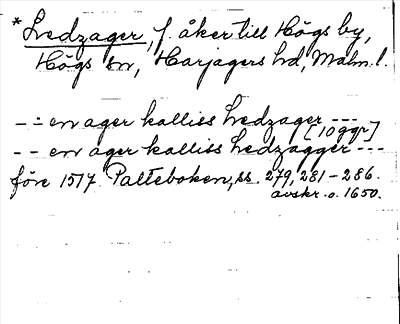 * Ledzager, f. åker till Högs by,
Högs sn, Harjagers hd, Malm. l.
- - en ager kalliss Ledzager - - -
[10 ggr]
- - en ager kalliss Ledzagger - - -
före 1517 Palteboken, ss. 279, 281-286.
avskr. o. 1650.